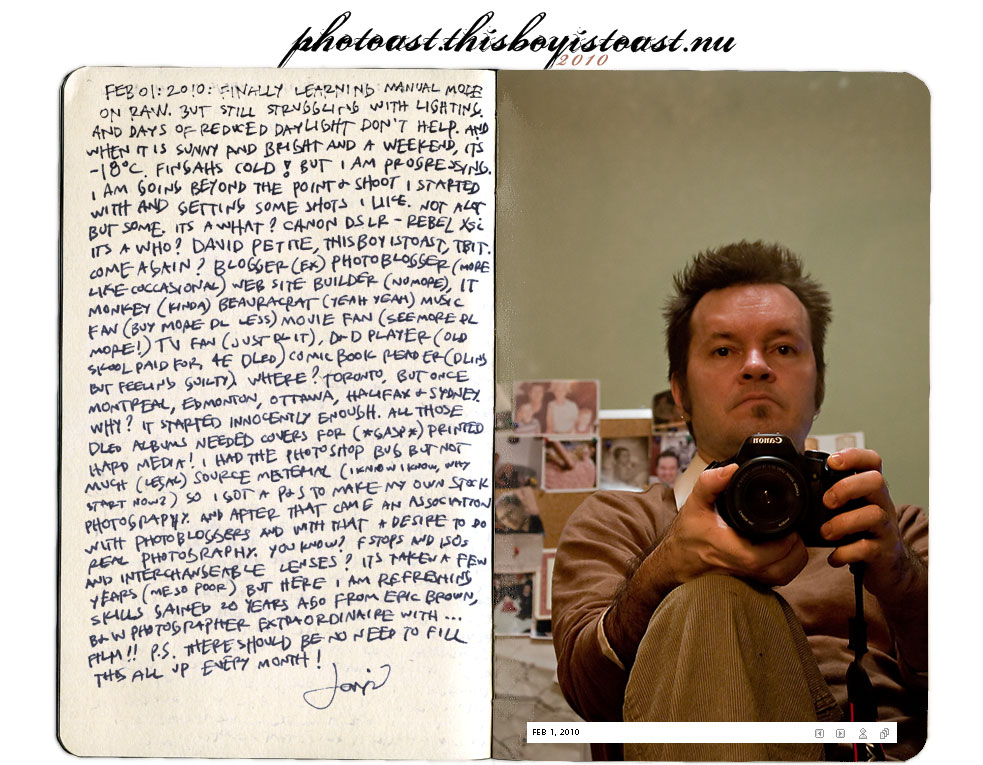 photoast.thisboyistoast.nu
2010
FEB 01:2010: FINALLY LEARNING MANUAL MODE
ON RAW. BUT STILL STRUGGLING WITH LIGHTING.
AND DAYS OF REDUCED DAYLIGHT DON'T HELP. AND
WHEN IT IS SUNNY AND BRIGHT AND A WEEKEND, IT'S
-18°C. FINGAHS COLD! BUT I AM PROGRESSING.
I AM GOING BEYOND THE POINT & SHOOT I STARTED
WITH AND GETTING SOME SHOTS I LIKE. NOT ALOT
BUT SOME. ITS A WHAT? CANON DSLR - REBEL XSi
ITS A WHO? DAVID PETTIE, THISBOYISTOAST, TBIT.
COME AGAIN? BLOGGER (EX) PHOTOBLOGGER (MORE
LIKE OCCASIONAL) WEB SITE BUILDER (NO MORE), IT
MONKEY (KINDA) BEAURACRAT (YEAH YEAH) MUSIC
FAN (BUY MORE DL LESS) MOVIE FAN (SEE MORE DL
MORE!) TV FAN (JUST DL IT), D&D PLAYER (OLD
SKOOL PAID FOR, 4E DLED) COMIC BOOK READER (DLING
BUT FEELING GUILTY) WHERE? TORONTO, BUT ONCE
MONTREAL, EDMONTON, OTTAWA, HALIFAX & SYDNEY.
WHY? IT STARTED INNOCENTLY ENOUGH. ALL THOSE
DLED ALBUMS NEEDED COVERS FOR (*GASP*) PRINTED
HARD MEDIA! I HAD THE PHOTOSHOP BUG BUT NOT
MUCH (LEGAL) SOURCE METERIAL (I KNOW I KNOW, WHY
START NOW?) SO I GOT A P&S TO MAKE MY OWN STOCK
PHOTOGRAPHY. AND AFTER THAT CAME AN ASSOCIATION
WITH PHOTOBLOGGERS AND WITH THAT A DESIRE TO DO
REAL PHOTOGRAPHY. YOU KNOW? FSTOPS AND ISOs
AND INTERCHANGEABLE LENSES? ITS TAKEN A FEW
YEARS (ME SO POOR) BUT HERE I AM REFRESHING
SKILLS GAINED 20 YEARS AGO FROM ERIC BROWN,
B&W PHOTOGRAPHER EXTRAORDINAIRE WITH ...
FILM!! P.S. THERE SHOULD BE NO NEED TO FILL
THIS ALL UP EVERY MONTH!
Canon
FEB 1, 2010